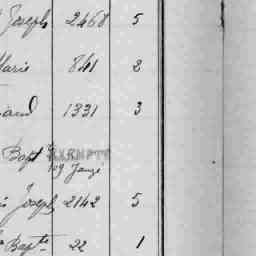 Joseph 2468 5
Marie 841 2
1331 3
Bapt EXEMPTE
Joseph 2142 5
Bapte 22 1